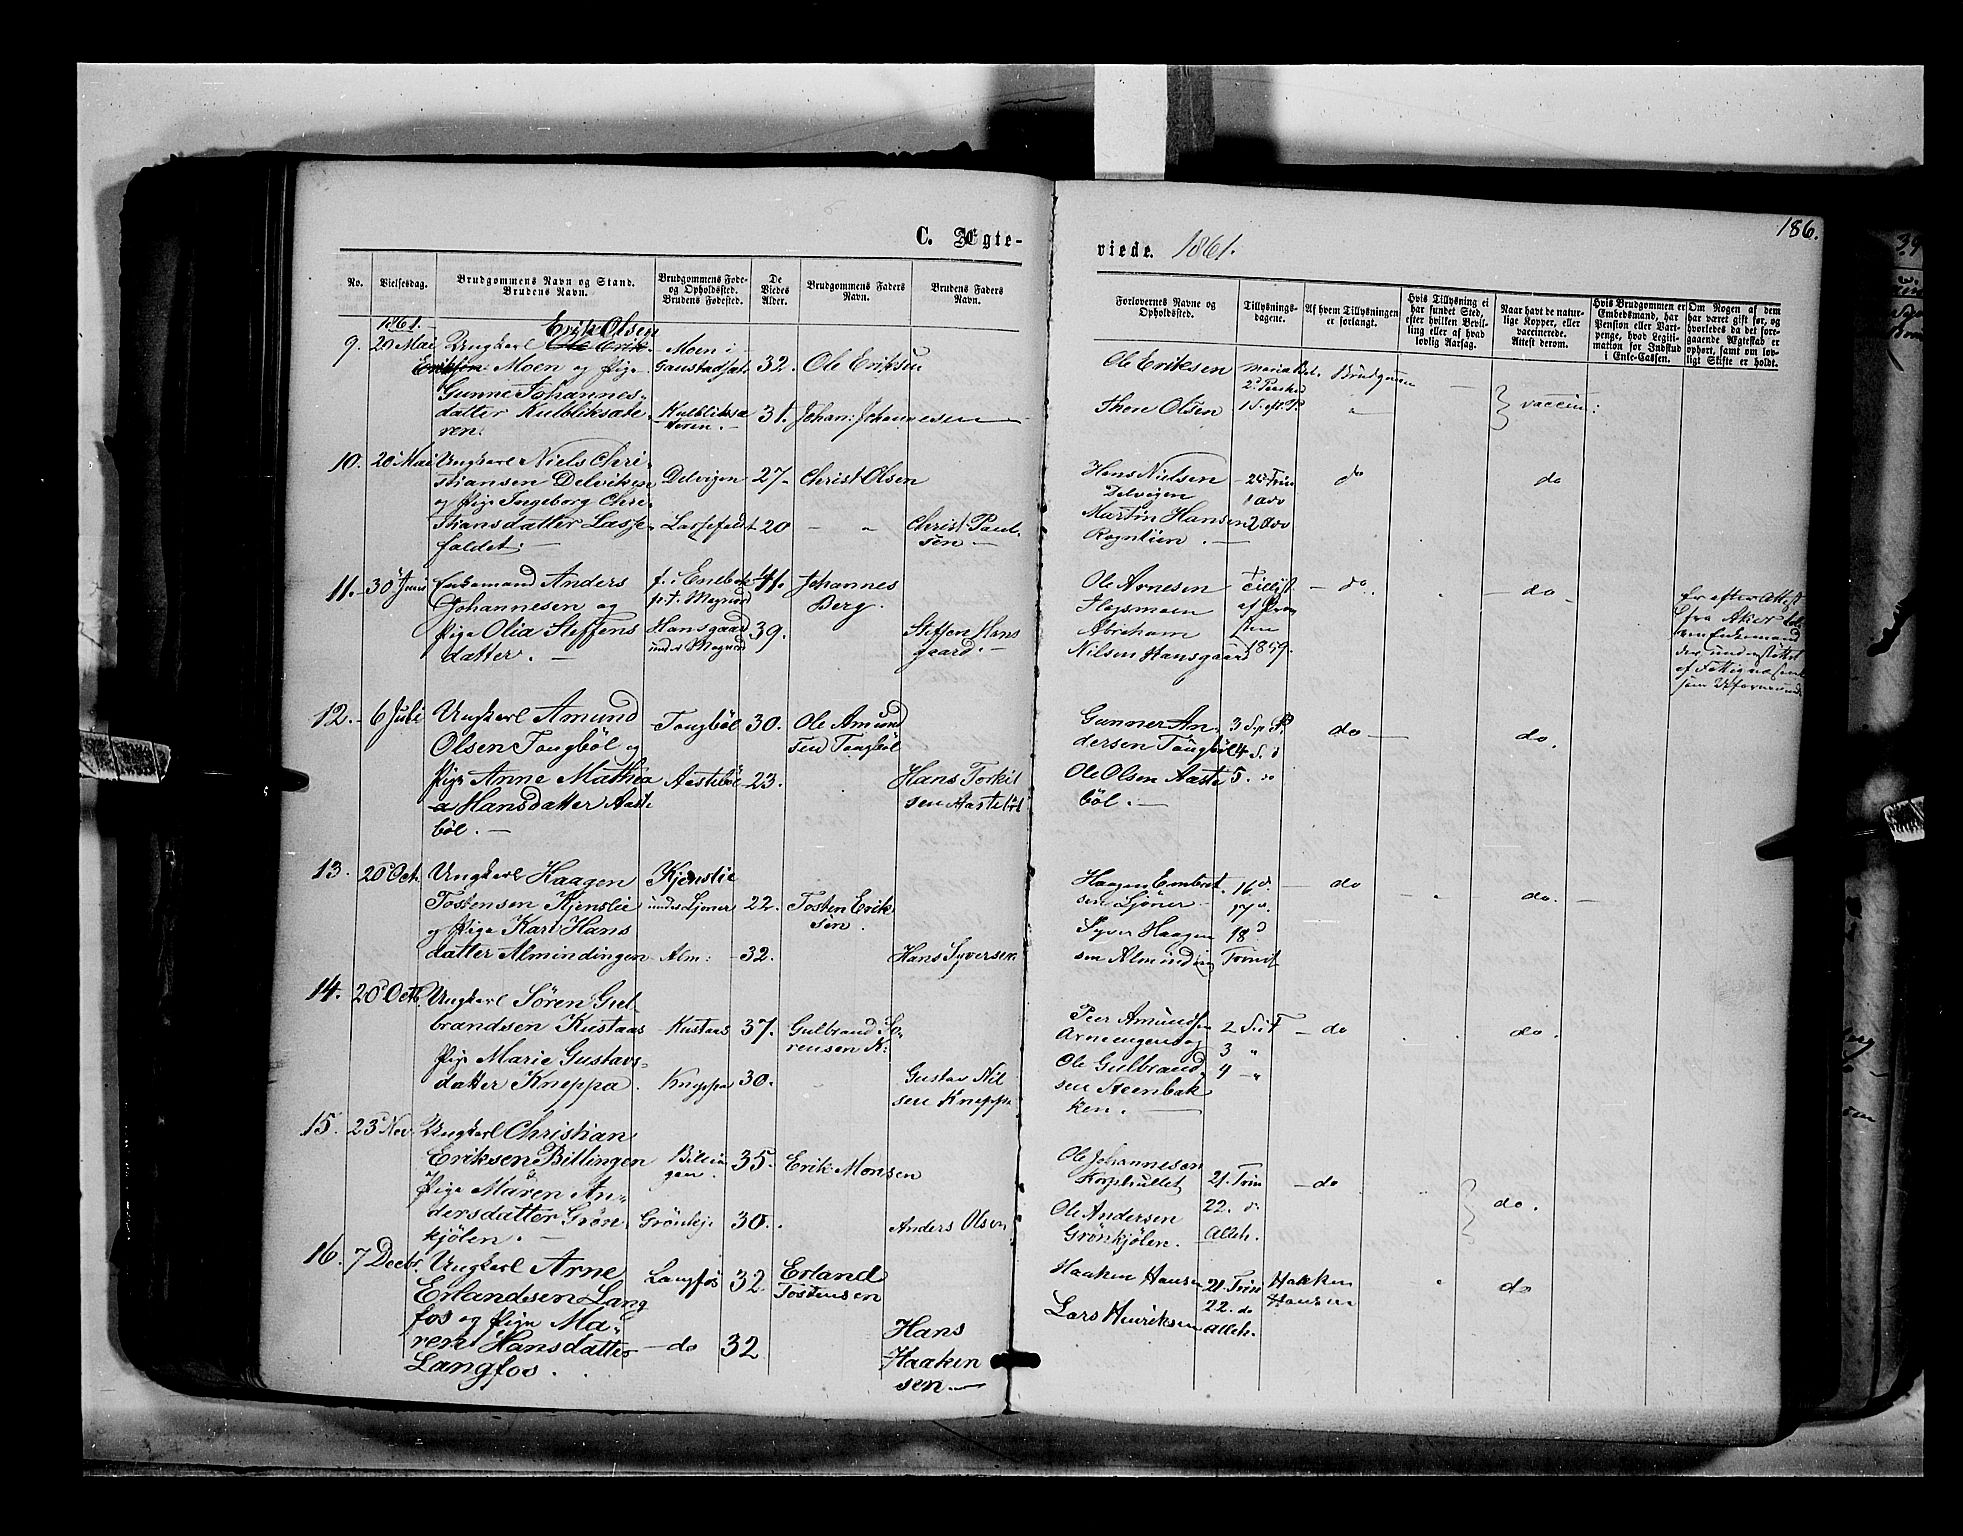 186.
C. Ægte-
viede. 1861.
No.
Vielsesdag.
Brudgommens Navn og Stand.
Brudens Navn.
Brudgommens Føde-
og Opholdssted.
Brudens Fødested.
De
Viedes
Alder.
Brudgommens Faders
Navn.
Brudens Faders
Navn.
Forlovernes Navne og
Opholdssted.
Tillysnings-
dagene.
Af hvem Tillysningen
er forlangt.
Hvis Tillysning ei
har fundet Sted,
efter hvilken Bevil-
ling eller af hvad
lovlig Aarsag.
Naar havt de natur-
lige Kopper, eller
vaccinerede.
Attest derom.
Hvis Brudgommen er
Embedsmand, har
Pension eller Vart-
penge, hvad Legiti-
mation for Indskud
i Enke-Cassen.
Om Nogen af dem
har været gift før, og
hvorledes da det fore-
gaaende Ægteskab er
ophørt, samt om lov-
ligt Skifte er holdt.
1861.
9. 20 Mai Ungkarl Erik Olsen
Moen og Pige
Gunne Johannes-
datter Kulbliksæte-
ren.
Moen i
Gaustadsæt. 32. Ole Eriksen
Kulbliksæ-
teren. 31. Johan: Johannesen
Ole Eriksen
Thore Olsen
Brudgommen
vaccin:
10. 20 Mai Ungkarl Niels Chri-
stiansen Delviken
og Pige Ingeborg Chri-
stiansdatter Lasse-
faldet.
Delvigen 27 Christ Olsen
Lassefaldt 20 Christ Paul-
sen
Hans Nielsen
Delvigen
Martin Hansen
Rognlien.
do do
11. 30 Juni Enkemand Anders
Johannesen og
Pige Olia Steffens
datter.
f. i Enebak
p.t. Magnord 41. Johannes
Berg.
Hansgaard
under Magnord 39. Steffen Hans
gaard.
Ole Arnesen
Abraham
Nilsen Hansgaard
1859.
do do
er efter Attest
fra Aker
Enkemand
der understøttet
af Fattigvæsenet
12. 6 Juli Ungkarl Amund
Olsen Tangbøl og
Pige Anne Mathea
Hansdatter Aaste
bøl.
Tangbøl 30. Ole Amund
sen Tangbøl
Aastebøl 23. Hans Torkil
sen Aastebøl
Gunner An-
dersen Tangbøl
Ole Olsen Aaste
bøl.
3 4 5.
do do.
13. 20 Oct. Ungkarl Haagen
Tostensen Kjenslie
og Pige Kari Hans
datter Almindingen
Kjenslie
under Ljøner 22. Tosten Erik
sen.
Alm: 32. Hans Syversen
Haagen Embret
sen Ljøner
Syver Haagen
sen Alminding
16 d.
17 d.
18 d
Trinit
do do.
14. 20 Octb. Ungkarl Søren Gul
brandsen Kustaas
Pige Marie Gustavs-
datter Kneppa.
Kustaas 37. Gulbrand Sø-
rensen K:
Kneppa 30. Gustav Nil
sen Kneppa
Peer Amundsen
Ole Gulbrand
sen Steenbak
ken.
2 3 4
do do.
15. 23 Nov. Ungkarl Christian
Eriksen Billingen
Pige Maren An-
dersdatter Grøn
kjølen.
Billin
gen. 35. Erik Monsen
Grønkjø 30. Anders Olsen
Ole Johannesen
Ole Andersen
Grønkjølen.
21. Trin
22. do
Alleh.
do do.
16. 7 Decbr. Ungkarl Arne
Erlandsen Lang
fos og Pige Ma-
ren Hansdatter
Langfos.
Langfos 32 Erland
Tostensen
do 32 Hans
Haaken
sen.
Haaken Hansen
Lars Henriksen
21. Trin
22. do
Alleh.
Hakken
Hansen
do